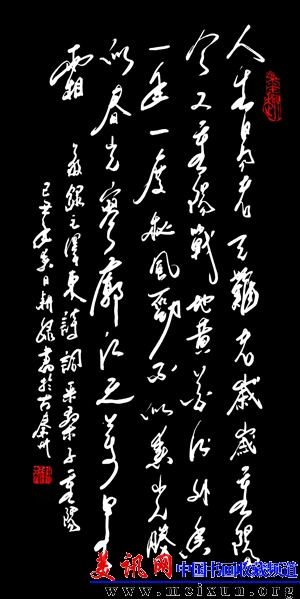 人生易老天難老歲歲重陽
今又重陽戰地黃花分外香
一年一度秋風勁不似春光勝
似春光寥廓江天萬里
霜
錄毛澤東詩詞采桑子重陽
己丑年日耕書於古秦州
美讯网 中国书画收藏频道
www.meixun.org